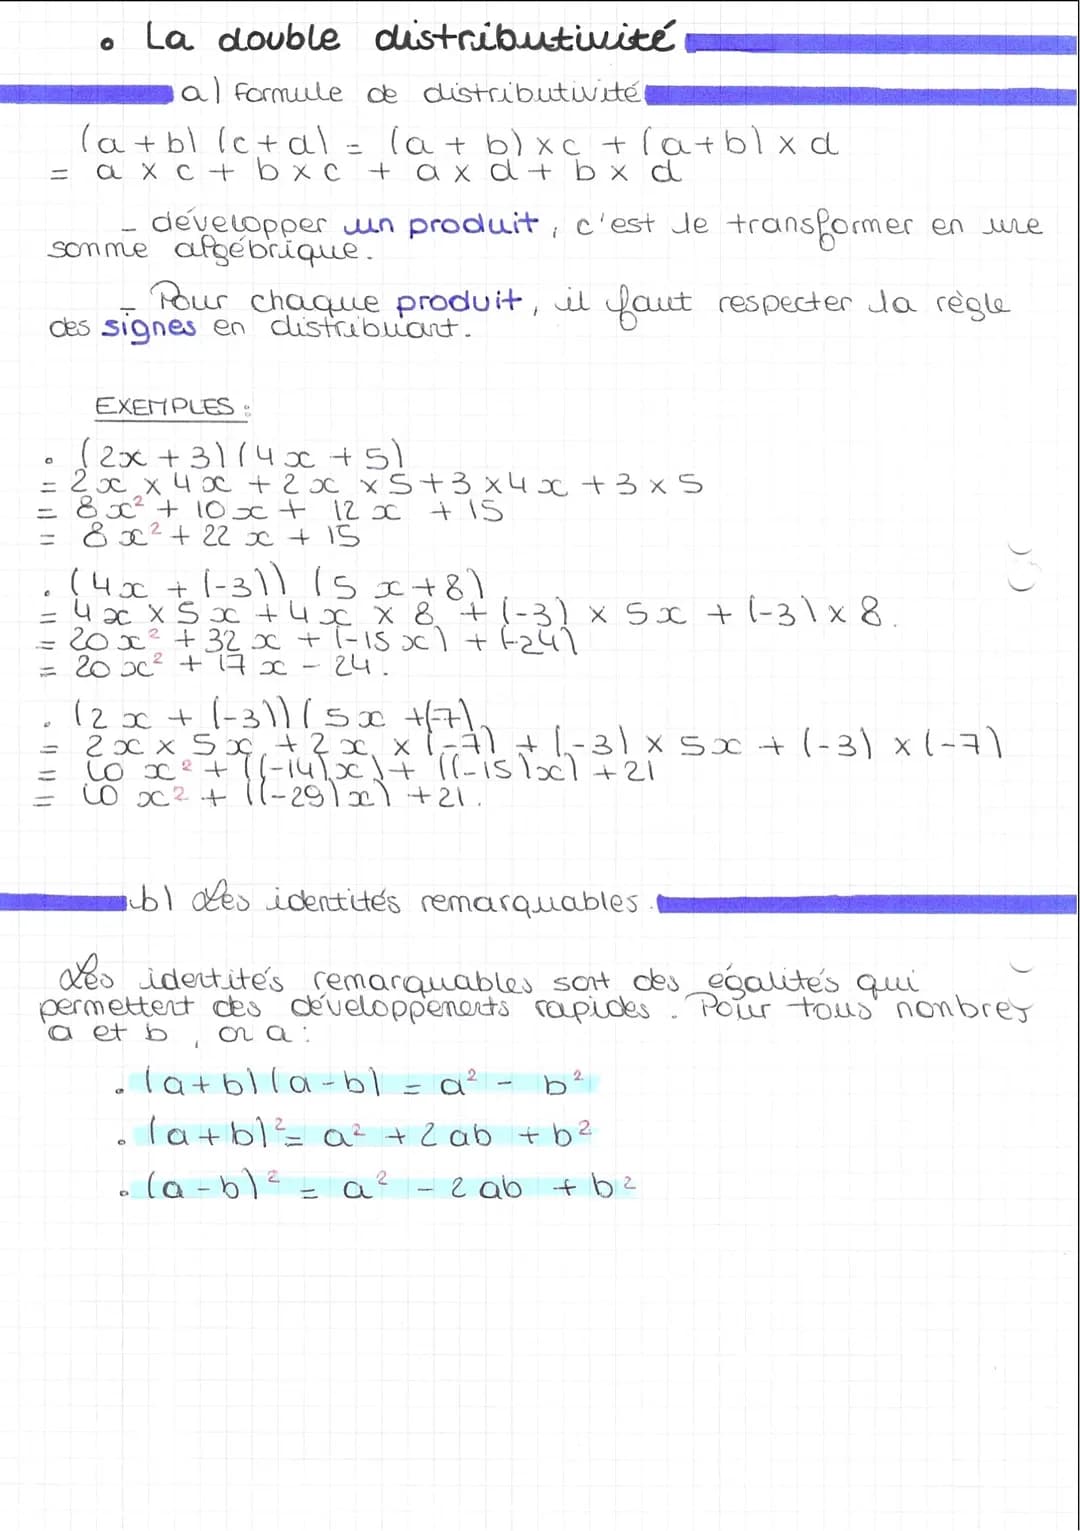 • La double distributivité
a) formule de distributivité
(a + b) (c + d) = (a + b) x c + (a+b) x d
= a x c + b x c + a x d + b x d
- développer un produit, c'est le transformer en une
somme algébrique.
- Pour chaque produit, il faut respecter la règle
des signes en distribuant.
EXEMPLES :
• (2x + 3) (4x + 5)
= 2x x 4x + 2x x 5 + 3 x 4x + 3 x 5
= 8x² + 10x + 12x + 15
= 8x² + 22x + 15
• (4x + (-3)) (5x + 8)
= 4x x 5x + 4x x 8 + (-3) x 5x + (-3) x 8.
= 20x² + 32x + (-15x) + (-24)
= 20x² + 17x - 24.
• (2x + (-3)) (5x + (-7)
= 2x x 5x + 2x x (-7) + (-3) x 5x + (-3) x (-7)
= 10x² + ((-14)x) + ((-15)x) + 21
= 10x² + ((-29)x) + 21.
b) Les identités remarquables.
Les identités remarquables sont des égalités qui
permettent des développements rapides. Pour tous nombres
a et b, on a :
• (a+b) (a-b) = a² - b²
• (a+b)² = a² + 2ab + b²
• (a-b)² = a² - 2ab + b²